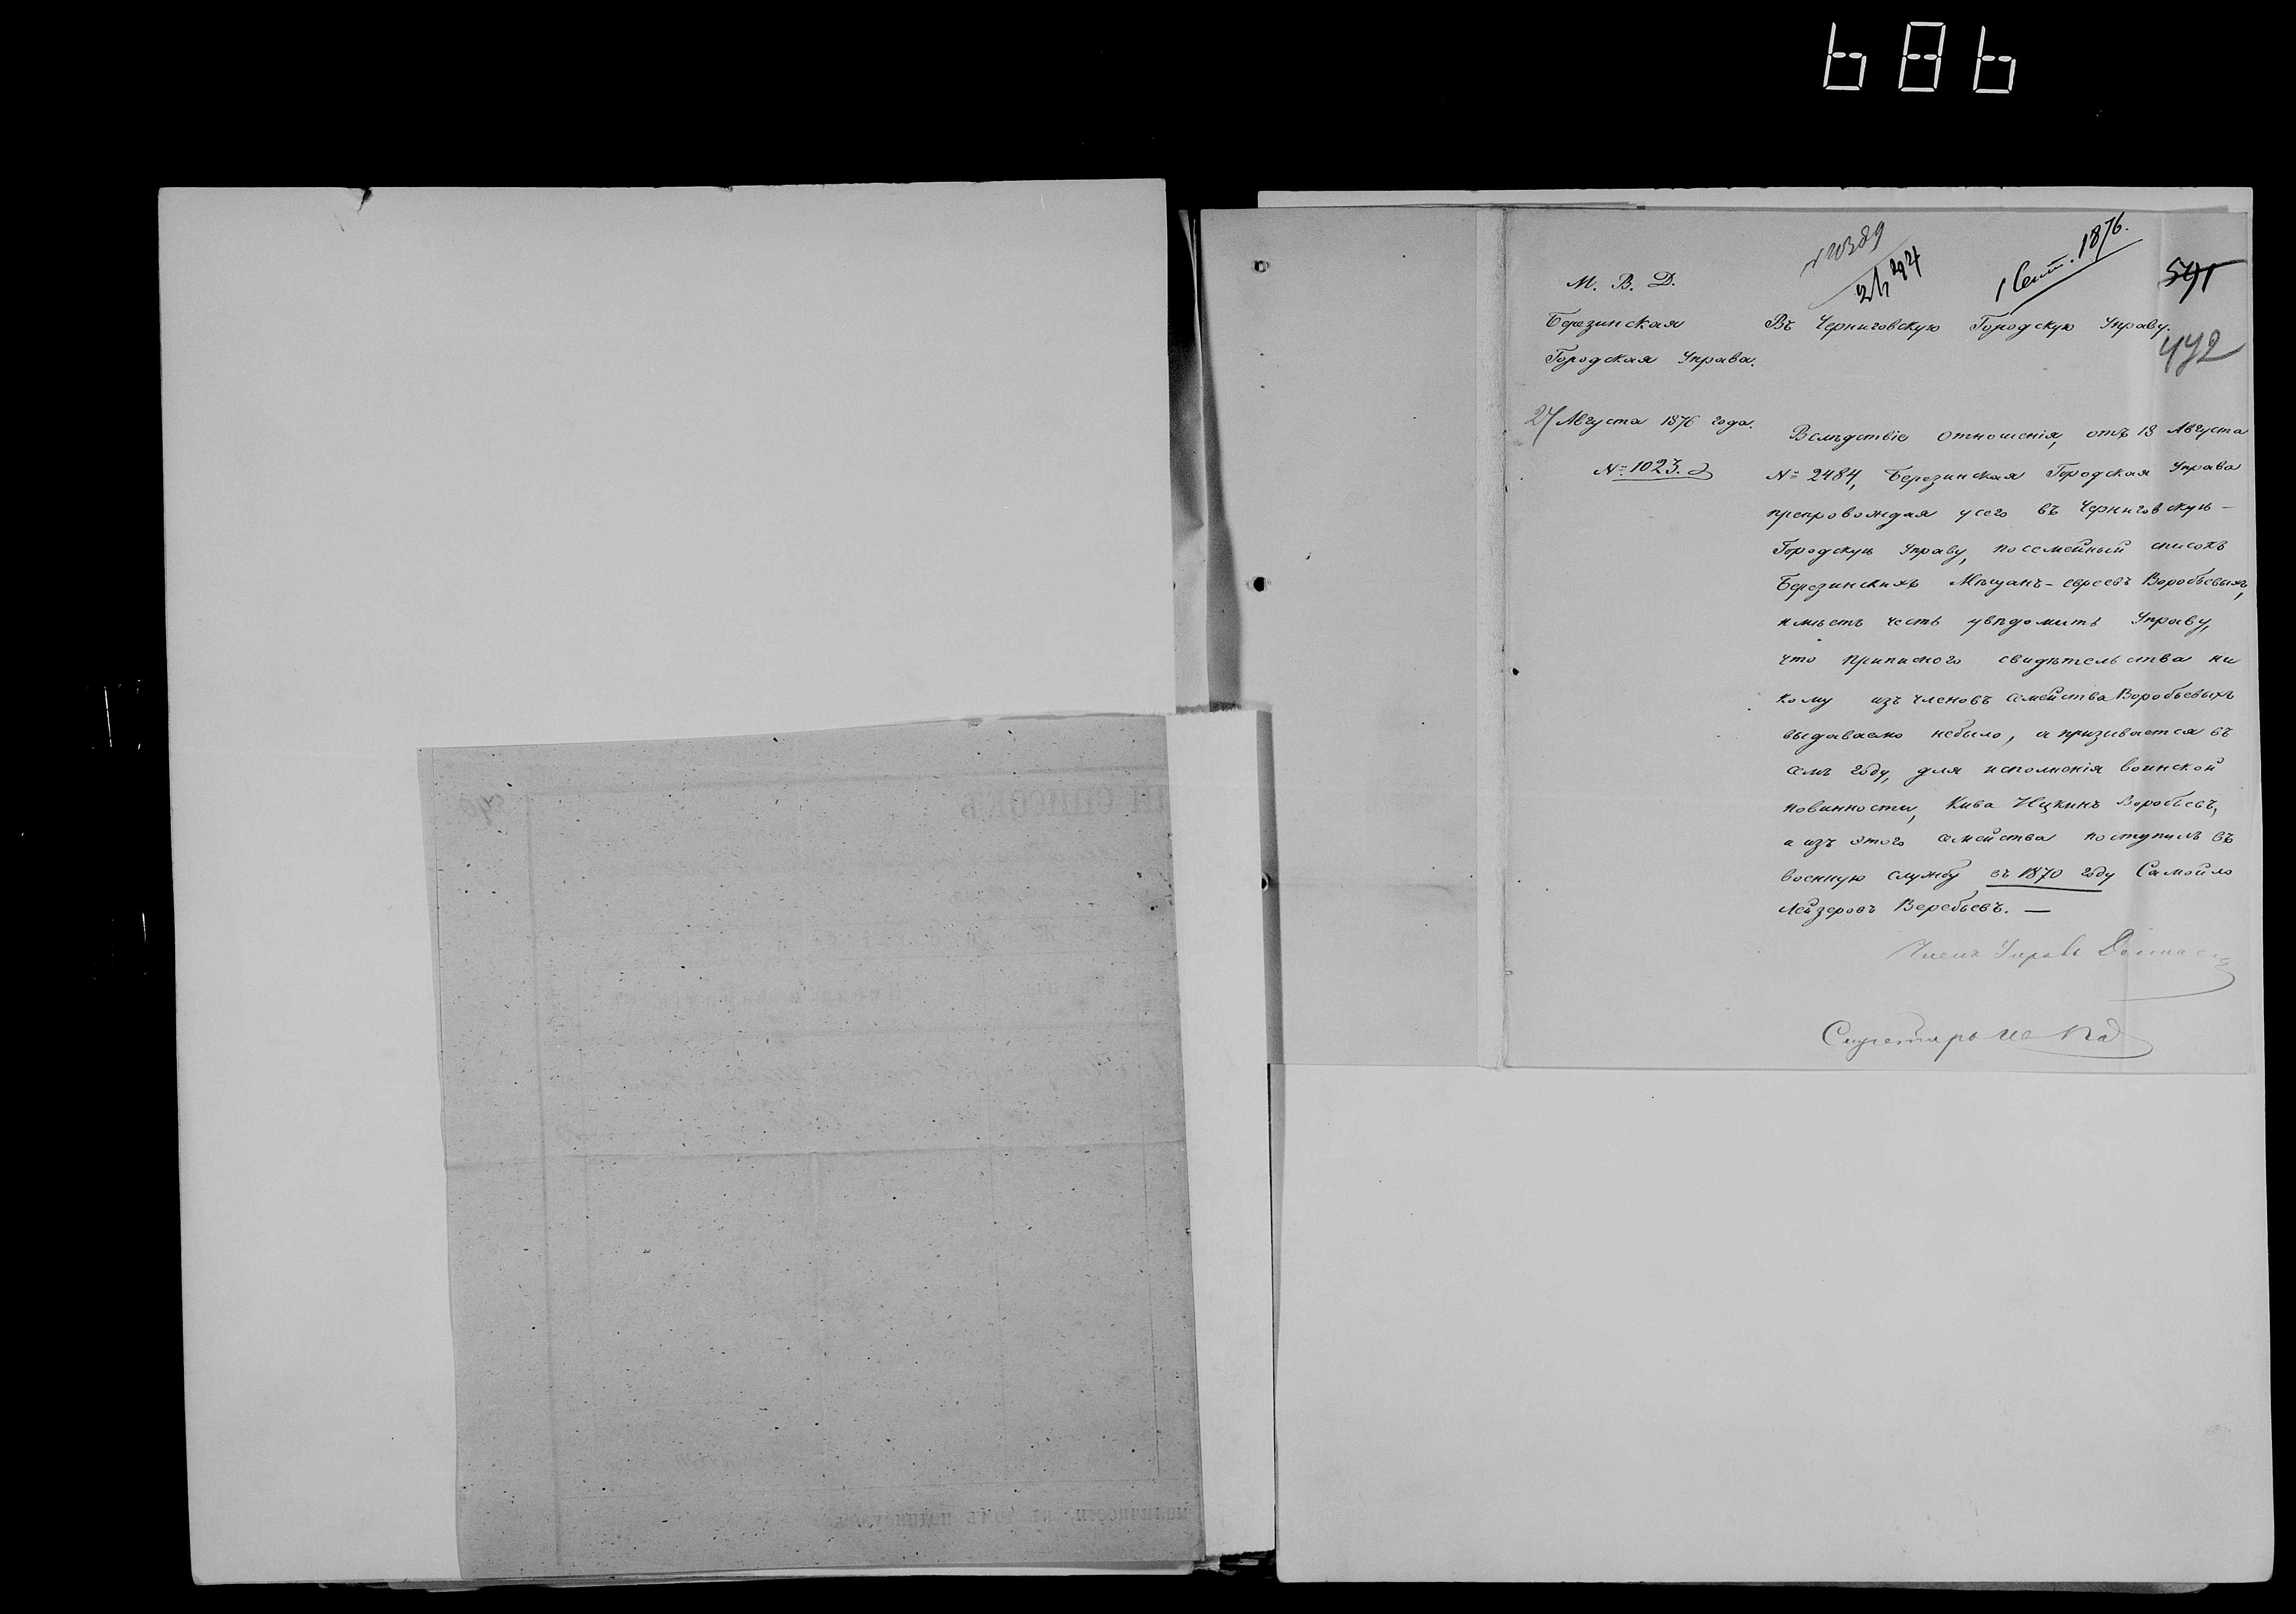 686
№ 10389
1 Сент. 1876.
591
442
М. В. Д.
Березинская
Городская Управа.
27 Августа 1876 года.
№ 1023.
Въ Черниговскую Городскую Управу.
Вслѣдствіе отношенія, отъ 18 Августа
№ 2484, Березинская Городская Управа
препровождая усего въ Черниговскую-
Городскую Управу, посемейный списокъ
Березинскихъ Мѣщанъ-евреевъ Воробьевыхъ,
имѣетъ честь увѣдомить Управу,
что приписного свидѣтельства ни
кому изъ членовъ семейства Воробьевыхъ
выдаваемо небыло, а призывается въ
семъ году, для исполненія воинской
повинности, Кива Ицкинъ Воробьевъ,
а изъ этого семейства поступилъ въ
военную службу въ 1870 году Самойло
Лейзеровъ Веребьевъ. —
Членъ Управы
Секретарь
СПИСОКЪ